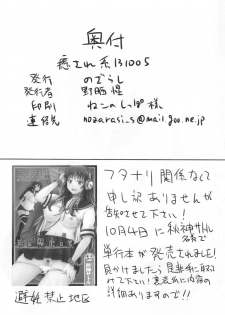 奥付
癒され系131005
発行 のざらし
発行者 野晒惺
印刷 ねこのしっぽ様
連絡先 nozarasi_s@mail.goo.ne.jp
フタナリ関係なくて
申し訳ありませんが
告知させて下さい!
10月4日に秋神サトル
名義で
単行本が発売されました!
見かけましたら是非手に取ってみて下さい!裏表紙に内容の
詳細ありますので!!
避妊禁止地区